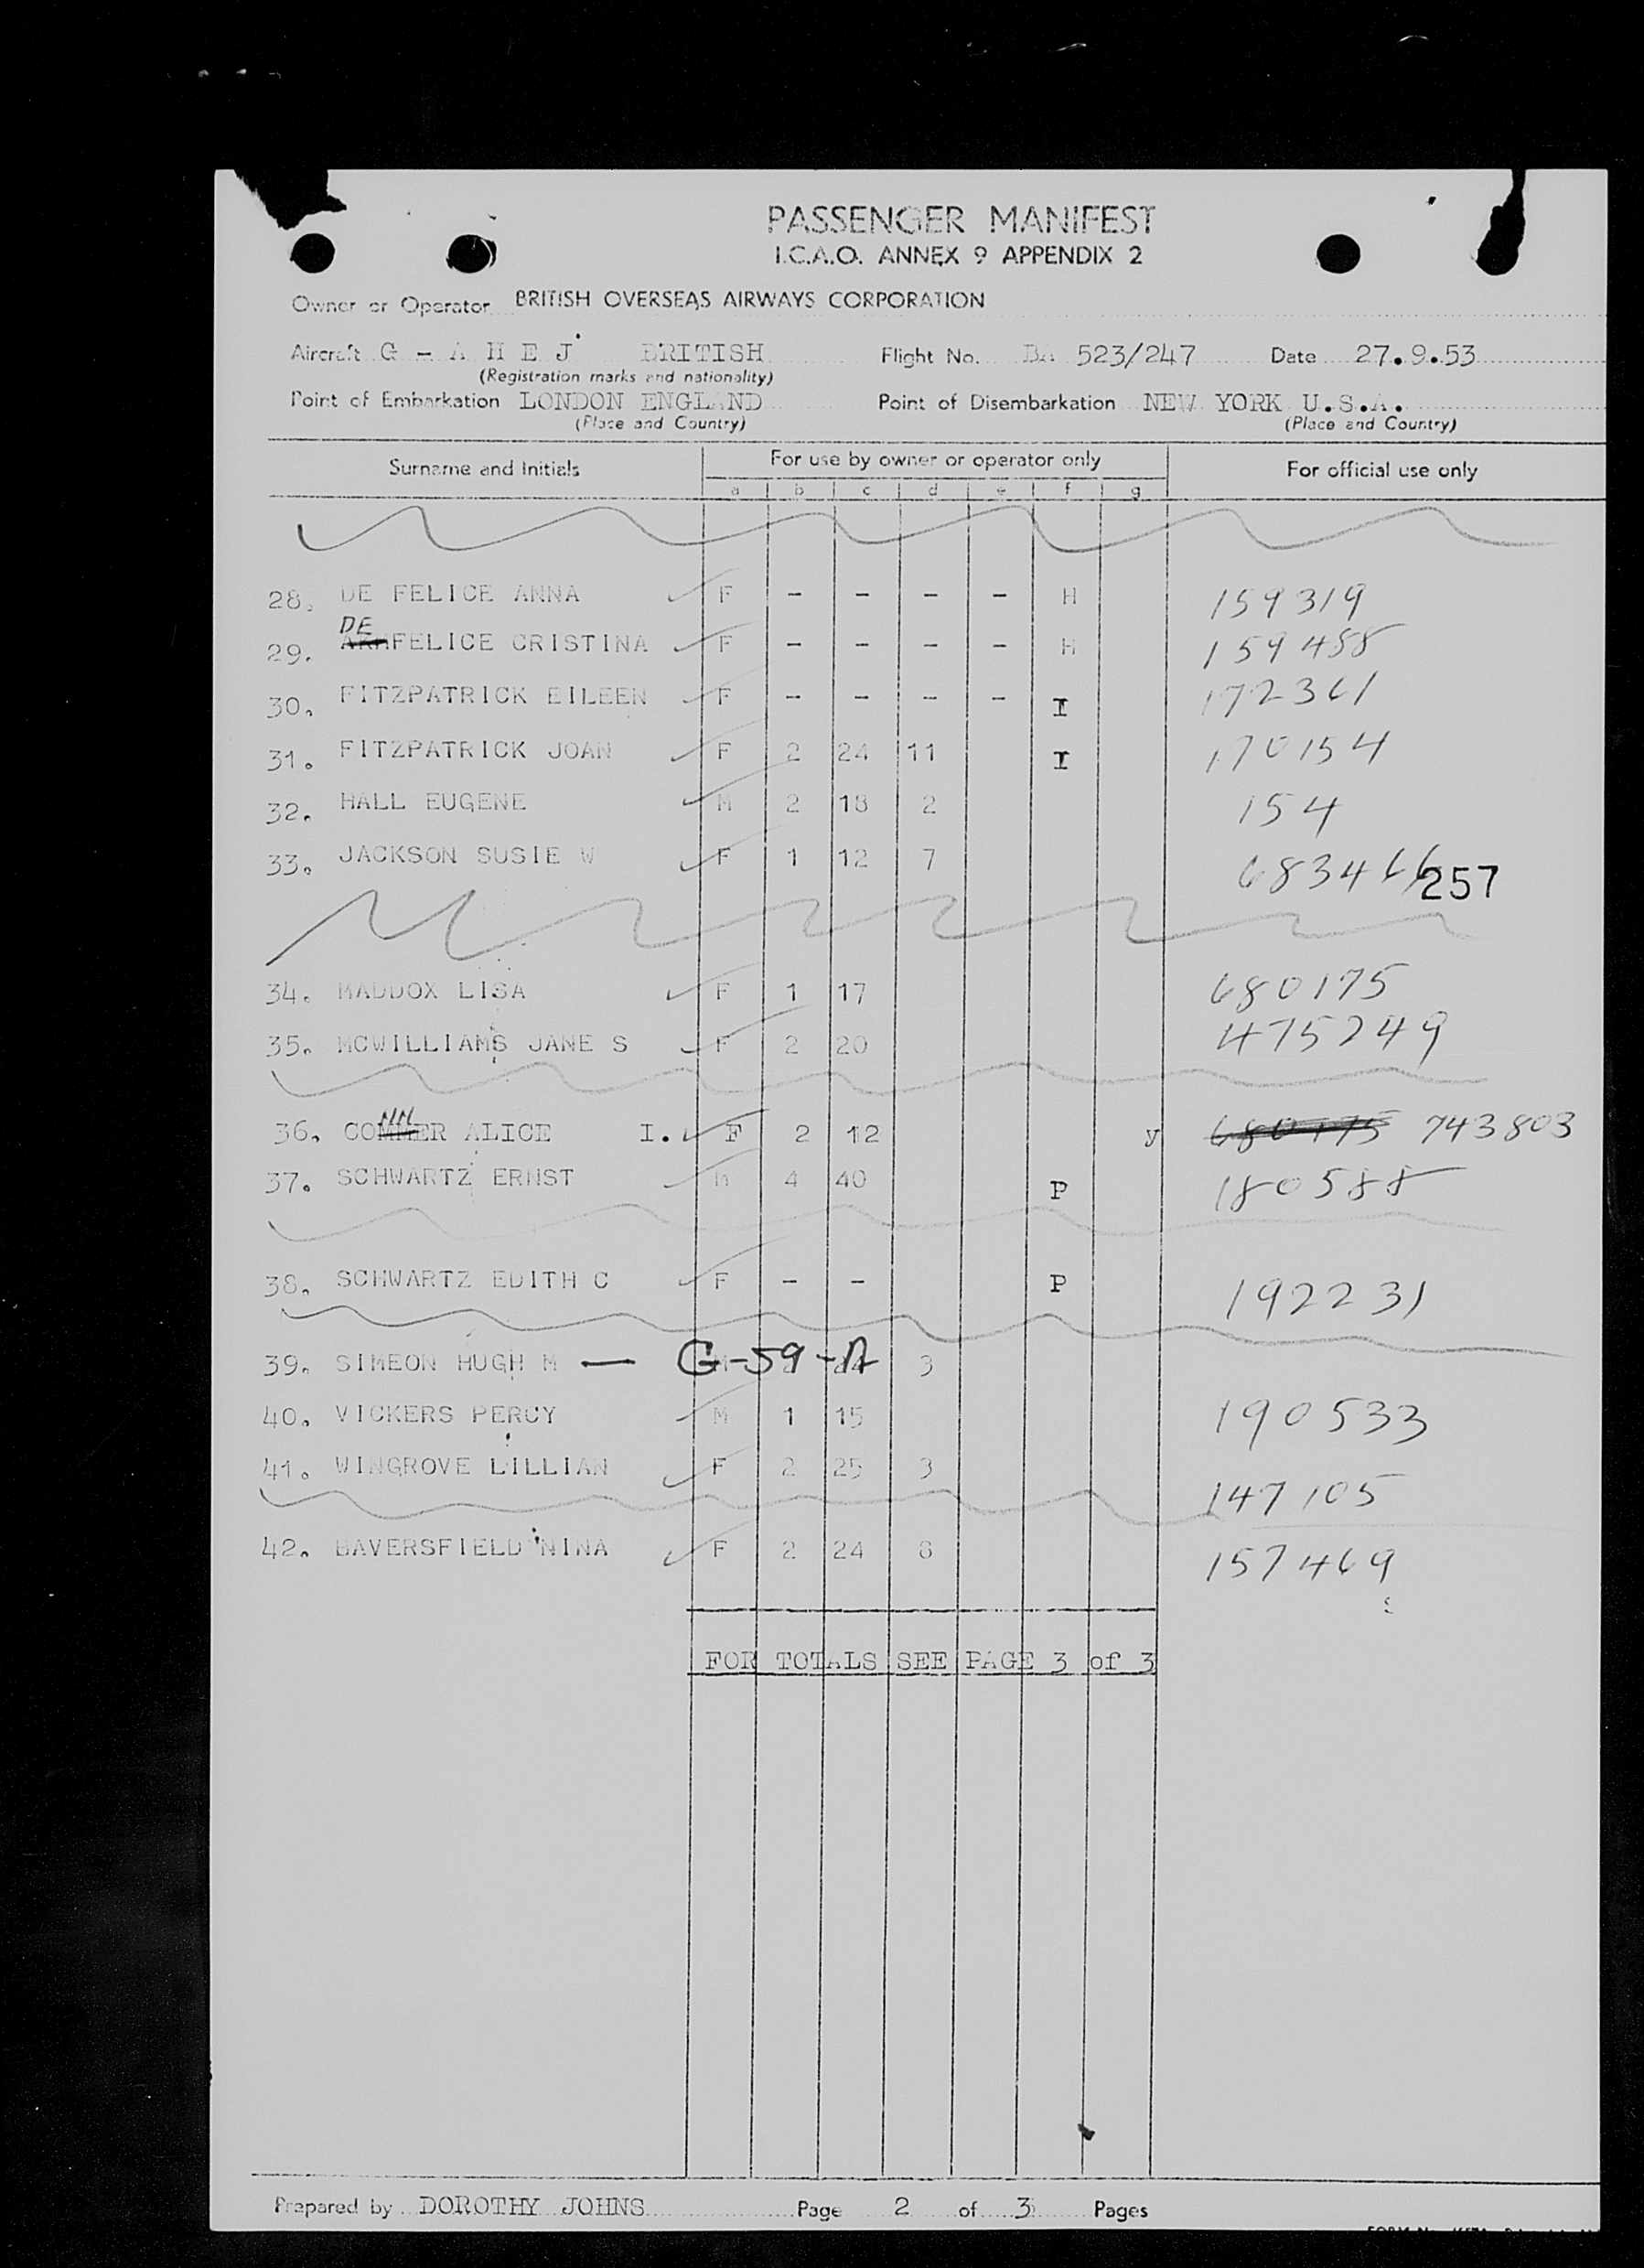 PASSENGER MANIFEST
I.C.A.O. ANNEX 9 APPENDIX 2
Owner or Operator BRITISH OVERSEAS AIRWAYS CORPORATION
Aircraft G - A H E J BRITISH Flight No. BA 523/247 Date 27.9.53
(Registration marks and nationality)
Point of Embarkation LONDON ENGLAND Point of Disembarkation NEW YORK U.S.A.
(Place and Country) (Place and Country)
Surname and Initials For use by owner or operator only For official use only
a b c d e f g
28. DE FELICE ANNA F - - - - H 159319
DE
29. FELICE CRISTINA F - - - - H 159488
30. FITZPATRICK EILEEN F - - - - I 172361
31. FITZPATRICK JOAN F 2 24 11 I 170154
32. HALL EUGENE M 2 18 2 154
33. JACKSON SUSIE W F 1 12 7 683466 257
34. MADDOX LISA F 1 17 680175
35. MCWILLIAMS JANE S F 2 20 475249
NN
36. COMMER ALICE I. F 2 12 y 680175 743803
37. SCHWARTZ ERNST M 4 40 P 180588
38. SCHWARTZ EDITH C F - - P 192231
39. SIMEON HUGH M — G-59-A 3
40. VICKERS PERCY M 1 15 190533
41. WINGROVE LILLIAN F 2 25 3 147105
42. BAVERSFIELD NINA F 2 24 8 157469
FOR TOTALS SEE PAGE 3 of 3
Prepared by DOROTHY JOHNS Page 2 of 3 Pages